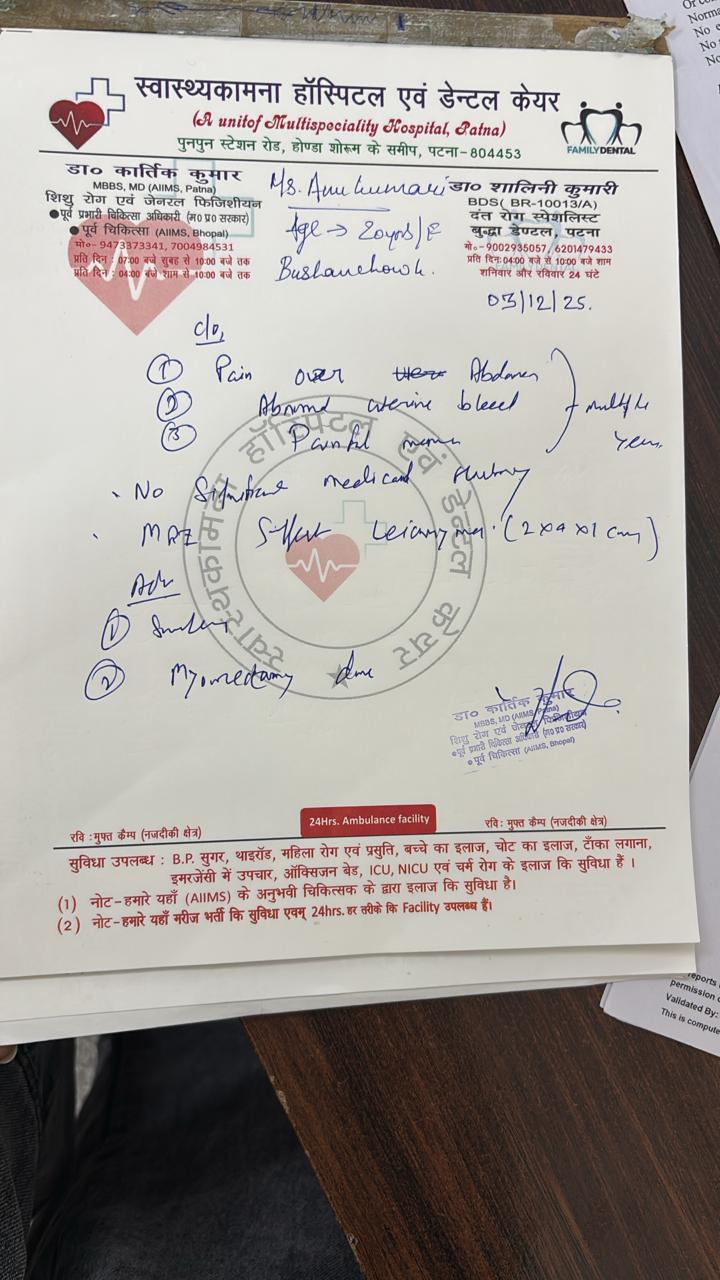 स्वास्थ्यकामना हॉस्पिटल एवं डेन्टल केयर
(A unitof Multispeciality Hospital, Patna)
पुनपुन स्टेशन रोड, होण्डा शोरूम के समीप, पटना-804453
FAMILYDENTAL
डा० कार्तिक कुमार
MBBS, MD (AIIMS, Patna)
शिशु रोग एवं जेनरल फिजिशीयन
●पूर्व प्रभारी चिकित्सा अधिकारी (म०प्र० सरकार)
●पूर्व चिकित्सा (AIIMS, Bhopal)
मो०- 9473373341, 7004984531
प्रति दिन : 07:00 बजे सुबह से 10:00 बजे तक
प्रति दिन : 04:00 बजे शाम से 10:00 बजे तक
Ms. Anu kumari
Age → 20 yrs/F
डा० शालिनी कुमारी
BDS( BR-10013/A)
दंत रोग स्पेशलिस्ट
बुद्धा डेण्टल, पटना
मो०-9002935057, 6201479433
प्रति दिन:04:00 बजे से 10:00 बजे शाम
शनिवार और रविवार 24 घंटे
03/12/25.
c/o,
① Pain over Abdomen
② uterine bleed
③ Painful
multiple
• No Significant medical History
(2 x 4 x 1 cm)
Adv
①
② Myomectomy
स्वास्थ्यकामना हॉस्पिटल एवं डेन्टल केयर
डा० कार्तिक कुमार
MBBS, MD (AIIMS, Patna)
शिशु रोग एवं जेनरल फिजिशीयन
●पूर्व प्रभारी चिकित्सा अधिकारी (म०प्र० सरकार)
●पूर्व चिकित्सा (AIIMS, Bhopal)
24Hrs. Ambulance facility
रवि :मुफ्त कैम्प (नजदीकी क्षेत्र)
रवि: मुफ्त कैम्प (नजदीकी क्षेत्र)
सुविधा उपलब्ध : B.P. सुगर, थाइरॉड, महिला रोग एवं प्रसुति, बच्चे का इलाज, चोट का इलाज, टाँका लगाना,
इमरजेंसी में उपचार, ऑक्सिजन बेड, ICU, NICU एवं चर्म रोग के इलाज कि सुविधा हैं ।
(1) नोट-हमारे यहाँ (AIIMS) के अनुभवी चिकित्सक के द्वारा इलाज कि सुविधा है।
(2) नोट-हमारे यहाँ मरीज भर्ती कि सुविधा एवम् 24hrs. हर तरीके कि Facility उपलब्ध हैं।
reports
permission
Validated By:
This is compute